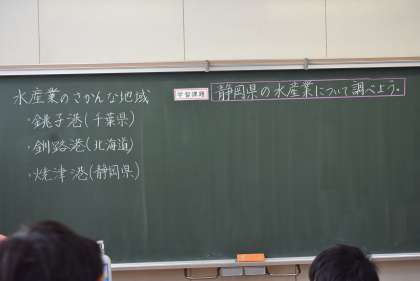 水産業のさかんな地域
・銚子港(千葉県)
・釧路港(北海道)
・焼津港(静岡県)
学習課題
静岡県の水産業について調べよう。